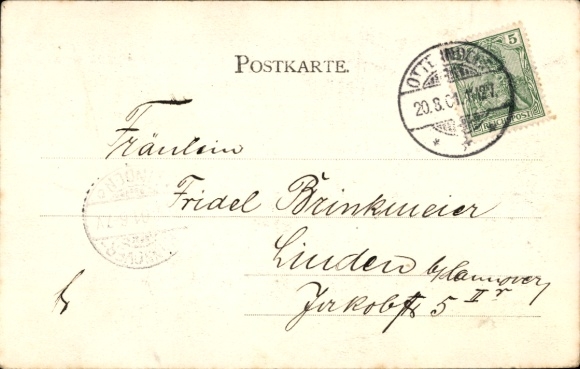 POSTKARTE.
5
REICHSPOST
20.8.01
Fräulein
Fridel Brinkmeier
Linden b/Hannover
Jakobstr 5 II r